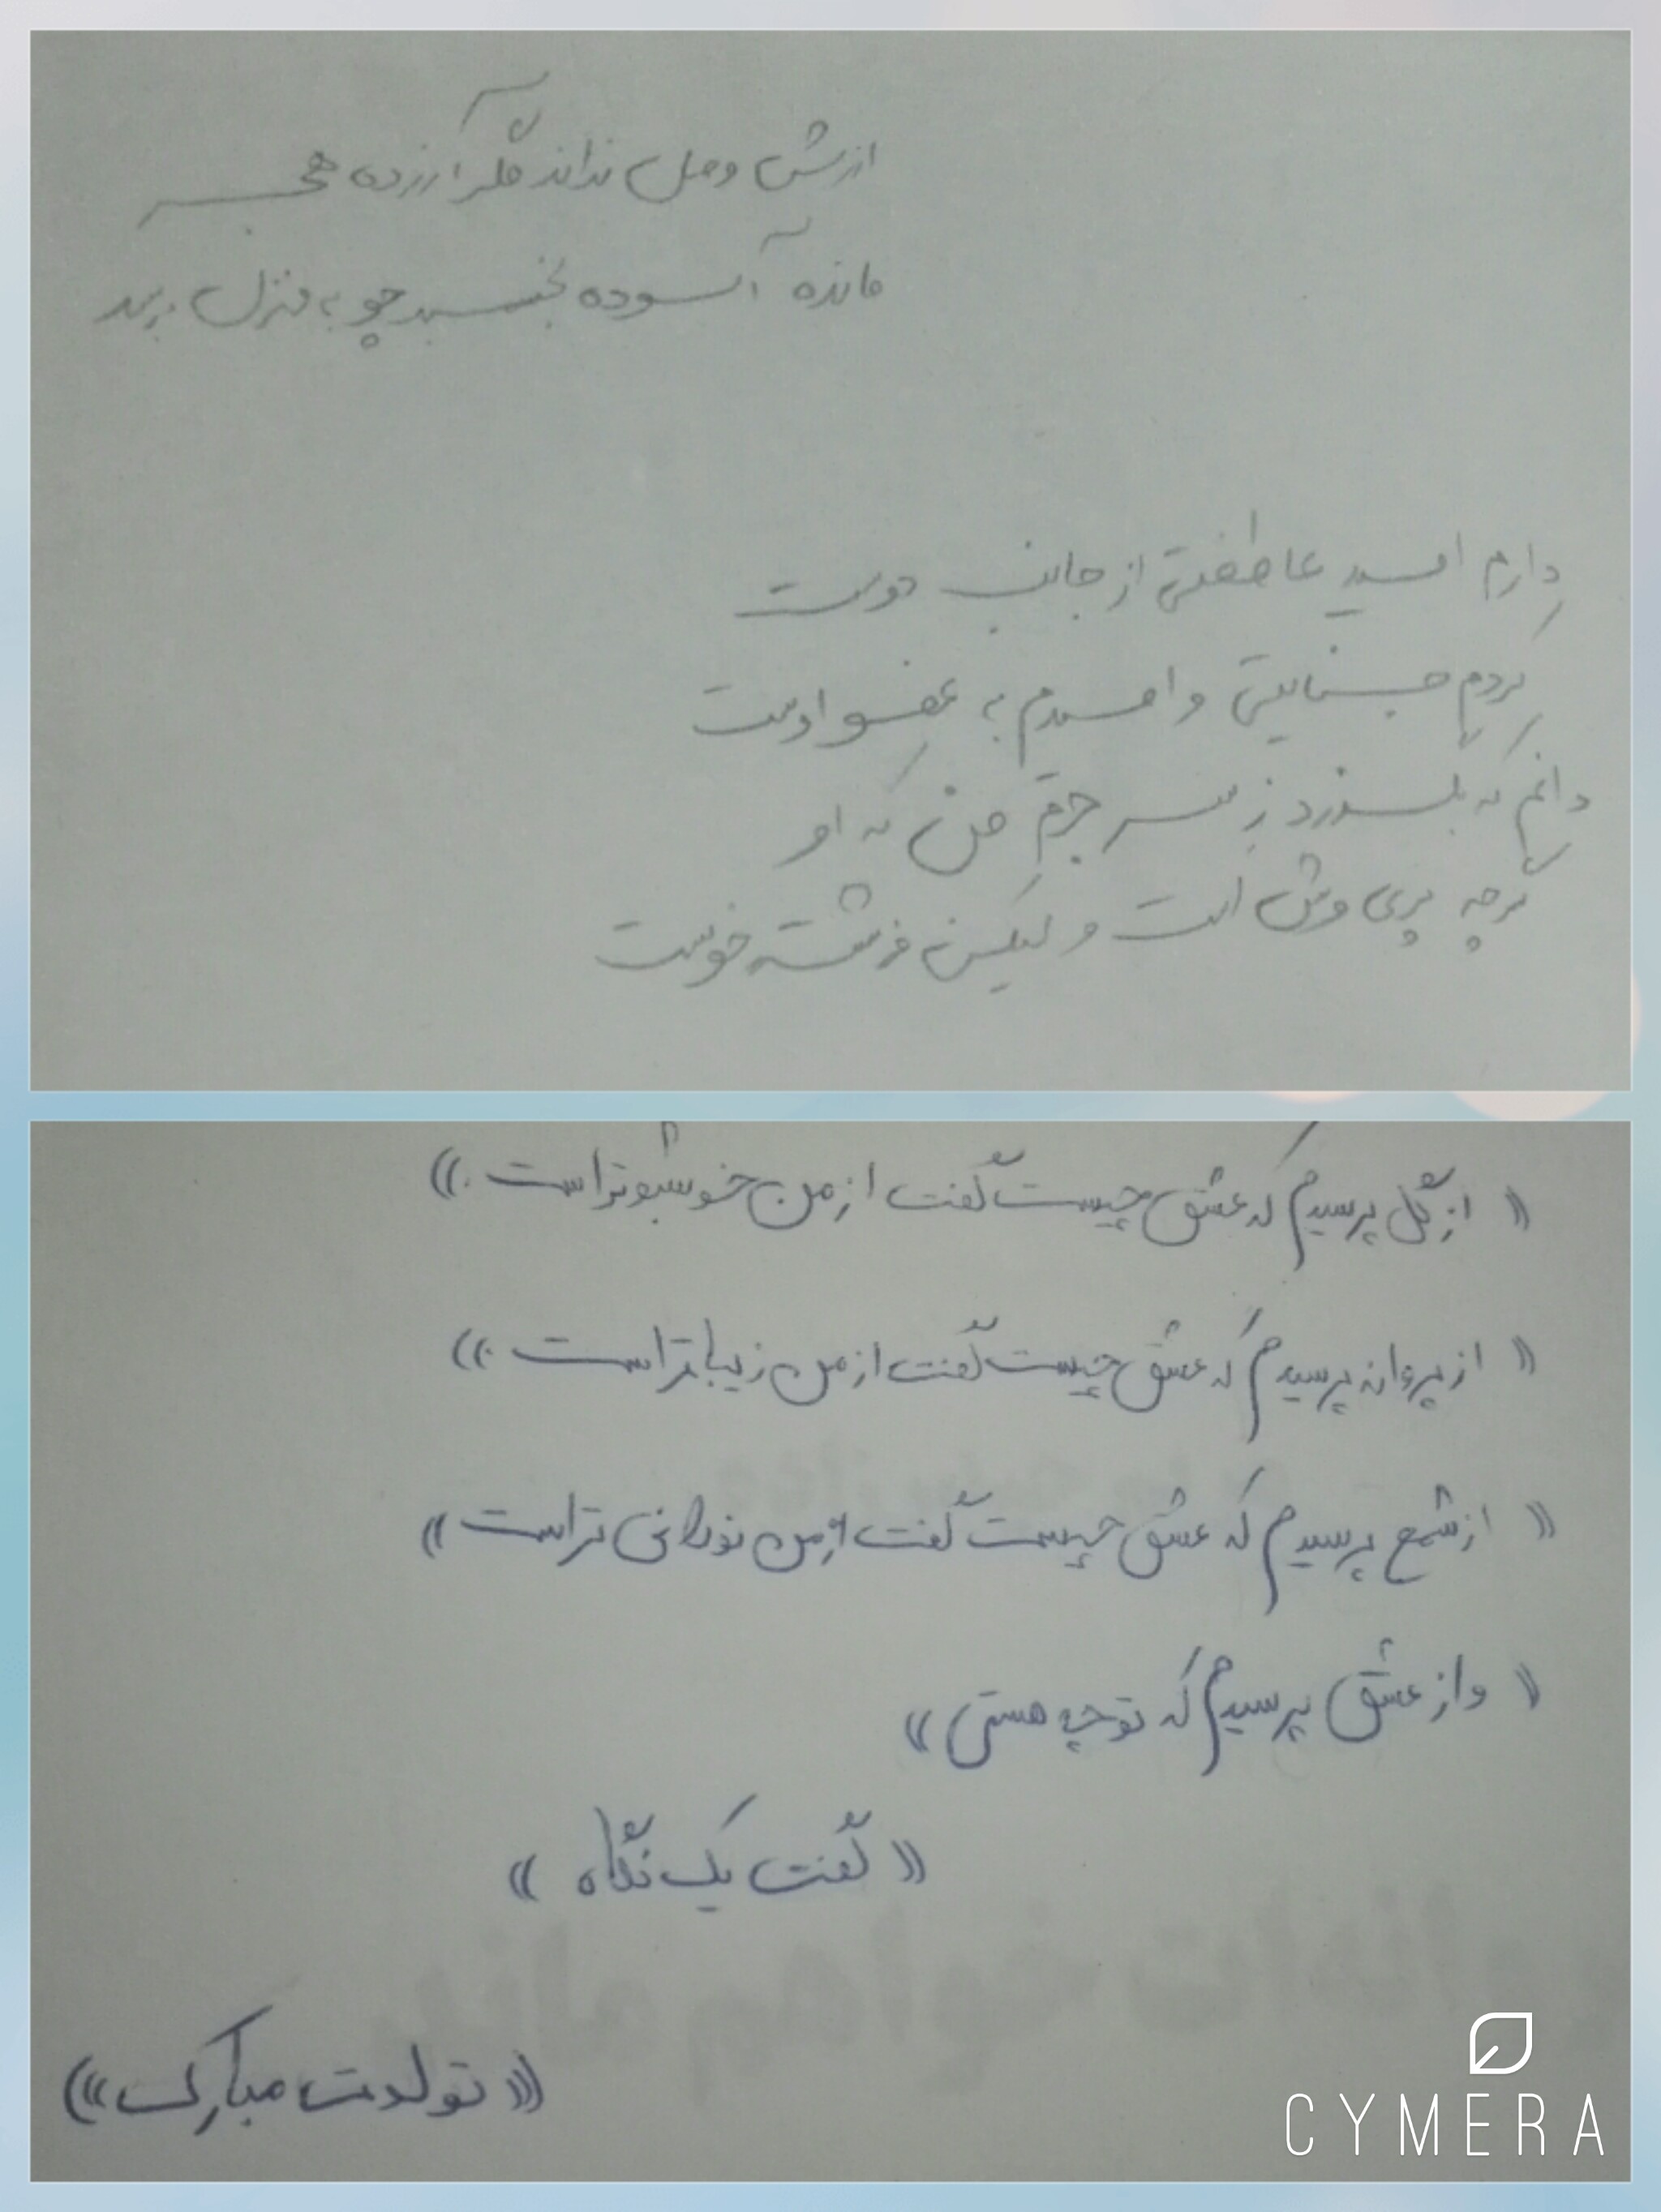 ارزش وصل نداند مگر آزرده هجر
مانده آسوده بخسبد چو به منزل برسد
دارم امید عاطفتی از جانب دوست
کردم جنایتی و امیدم به عفو اوست
دانم که بگذرد ز سر جرم من که او
گرچه پری وش است ولیکن فرشته خوست
« از گل پرسیدم که عشق چیست گفت از من خوشبوتر است. »
« از پروانه پرسیدم که عشق چیست گفت از من زیباتر است. »
« از شمع پرسیدم که عشق چیست گفت از من نورانی تر است »
« و از عشق پرسیدم که تو چه هستی »
« گفت یک نگاه »
« تولدت مبارک »
CYMERA